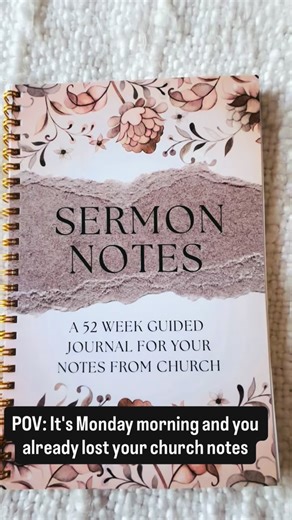 SERMON
NOTES
A 52 WEEK GUIDED
JOURNAL FOR YOUR
NOTES FROM CHURCH
POV: It's Monday morning and you
already lost your church notes